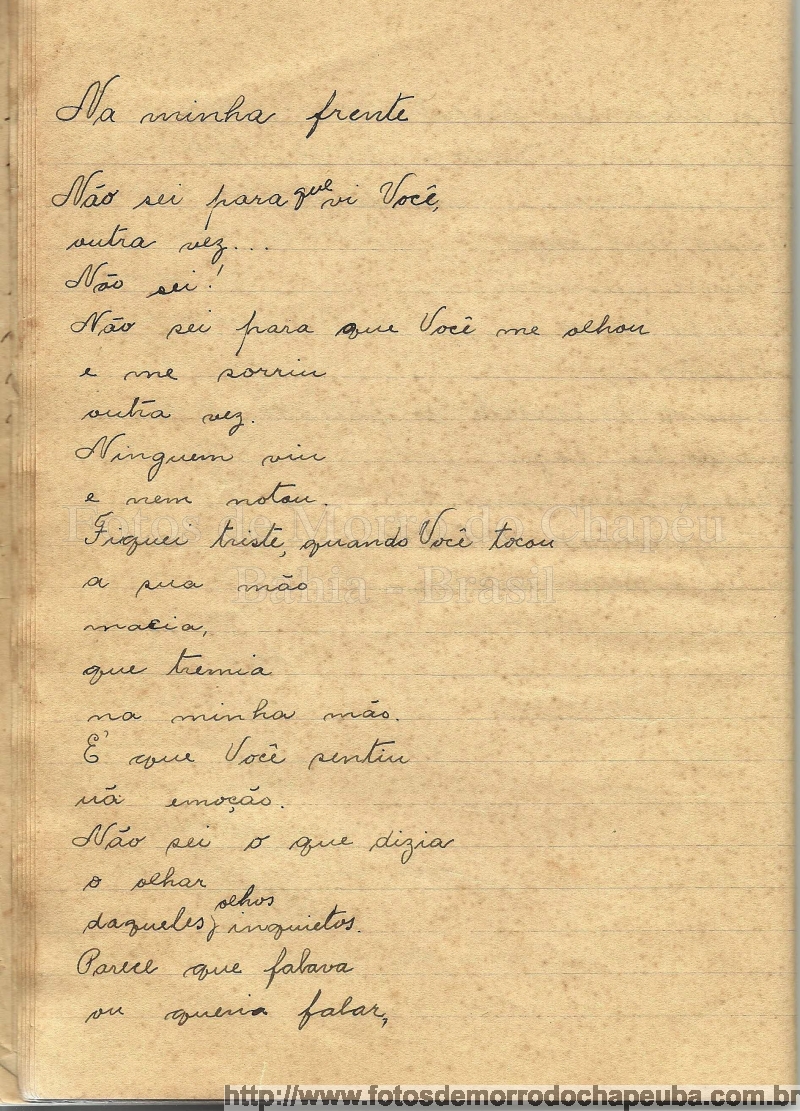 Na minha frente
Não sei para que vi Você,
outra vez...
Não sei!
Não sei para que Você me olhou
e me sorriu
outra vez.
Ninguem viu
e nem notou.
Fotos de Morro do Chapeu
Fiquei triste, quando Você tocou
a sua mão
Bahia - Brasil
macia,
que tremia
na minha mão.
E' que Você sentiu
uã emoção.
Não sei o que dizia
o olhar
daqueles olhos inquietos.
Parece que falava
ou queria falar,
http://www.fotosdemorrodochapeuba.com.br